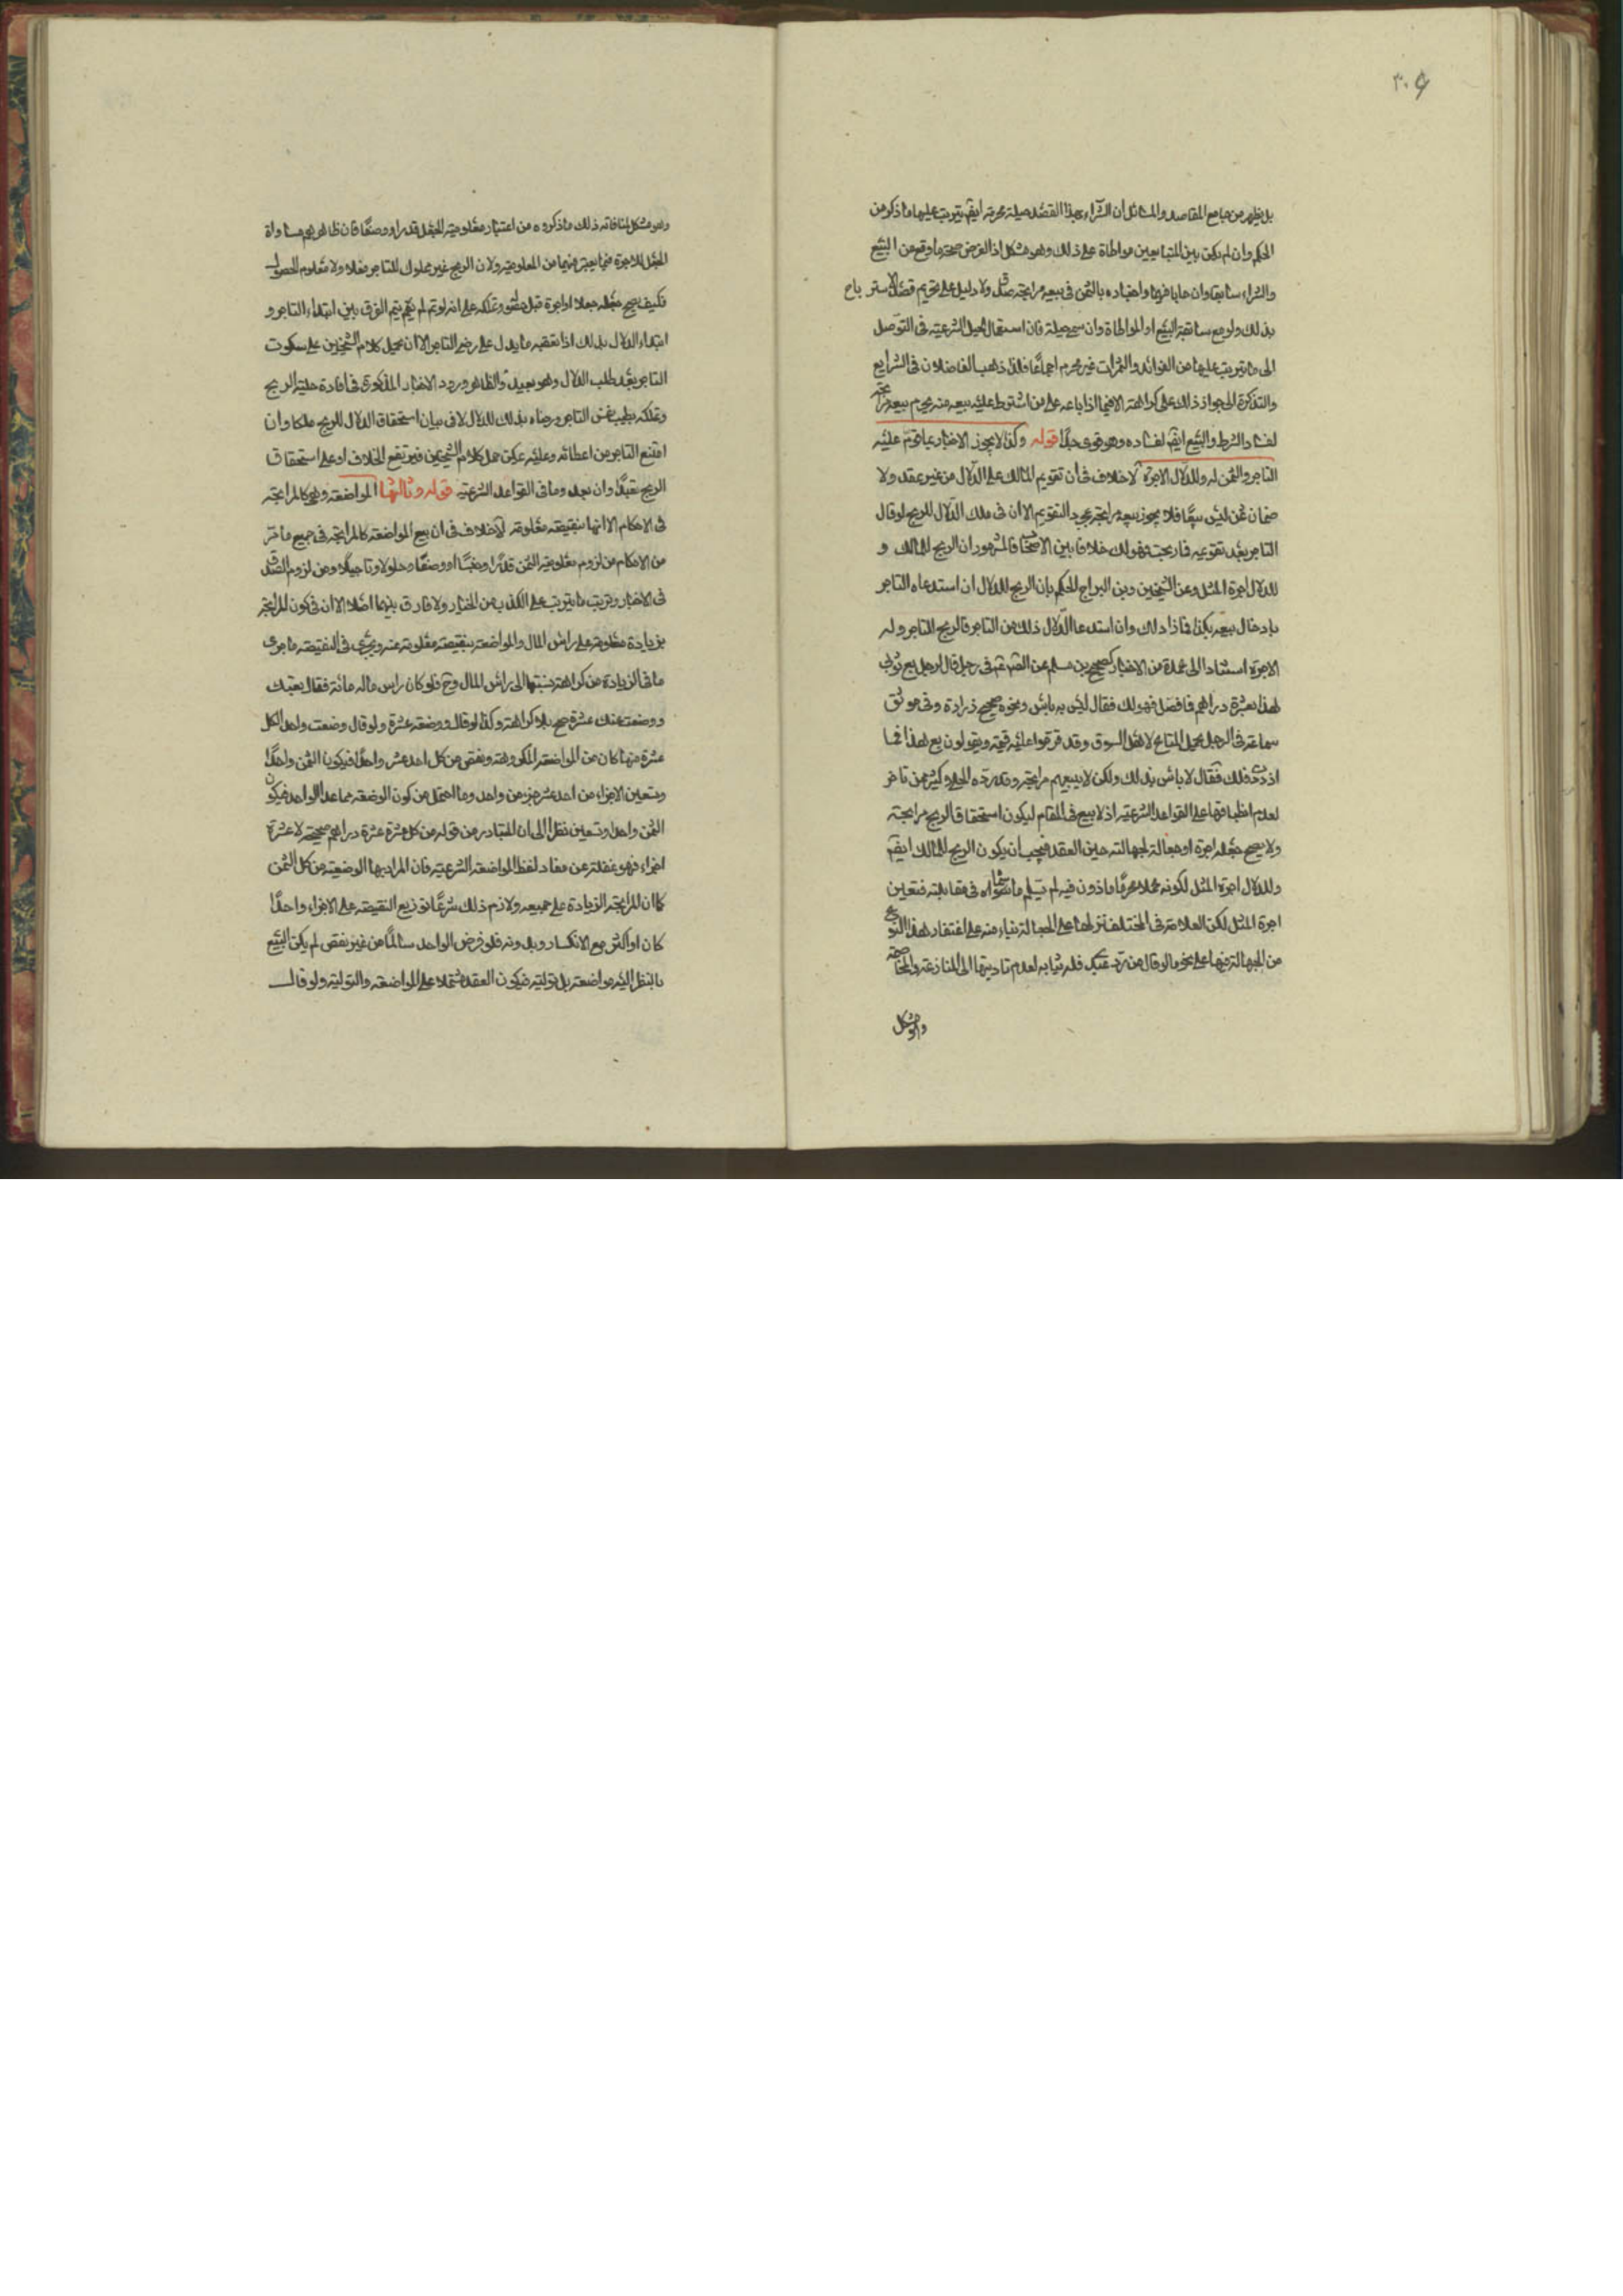 ٣٠٤
بل يظهر من جامع المقاصد والمسائل ان الشراء بهذا القصد حيلة محرمة ايضم يترتب عليها ما ذكر من
الحكم وان لم يكن بين المتبايعين مواطاة على ذلك وهو مشكل اذ الغرض صحة ما وقع من البيع
والشراء سابقا وان حابا فيهما واخباره بالثمن فى بيعه مرابحة صدق ولا دليل على تحريم قصد الاسترباح
بذلك ولو مع سابقة البيع او المواطاة وان سمى حيلة فان استعمال الحيل الشرعية فى التوصل
الى ما يترتب عليها من الفوائد والثمرات غير محرم اجماعا فلذا ذهب الفاضلان فى الشرايع
والتذكرة الى جواز ذلك على كراهة الا فيما اذا باعه على من اشترط عليه بيعه منه يحرم بيعه مرابحة
لفساد الشرط والبيع ايضم لفساده وهو قوى جدا قوله وكذا لا يجوز الاخبار بما قوم عليه
التاجر والثمن له وللدلال الاجرة لا خلاف فى ان تقويم المالك على الدلال من غير عقد ولا
ضمان ثمن ليس بيعا فلا يجوز بيعه مرابحة بمجرد التقويم الا ان فى ملك الدلال للربح لو قال
التاجر بعد تقويمه فما ربحت فهو لك خلافا بين الاصحاب فالمشهور ان الربح للمالك و
للدلال اجرة المثل وعن الشيخين وبن البراج الحكم بان الربح للدلال ان استدعاه التاجر
بادخال بيعه بكذا فما زاد لك وان استدعا الدلال ذلك من التاجر فالربح للتاجر وله
الاجرة استنادا الى عدة من الاخبار كصحيح بن مسلم عن الصم عم فى رجل قال لرجل بع ثوبى
هذا بعشرة دراهم فما فضل فهو لك فقال ليس به باس ونحوه صحيح زرارة وفى موثق
سماعة فى الرجل يحمل المتاع لاهل السوق وقد قوموا عليه قيمة ويقولون بع هذا فما
ازددت فلك فقال لا باس بذلك ولكن لا يبيعهم مرابحة وقد رده الحلى وكثير ممن تاخر
لعدم انطباقها على القواعد الشرعية اذ لا بيع فى المقام ليكون استحقاق الربح مرابحة
ولا يصح جعله اجرة او جعالة لجهالته حين العقد فيجب ان يكون الربح للمالك ايضم
وللدلال اجرة المثل لكونه عملا محرما ماذون فيه لم يسلم ما سماه فى مقابلته فتعين
اجرة المثل لكن العلامة فى المختلف نزلها على الجعالة بناء منه على اغتفار هذا النوع
من الجهالة فيها على نحو ما لو قال من رد عبدى فله ثيابه لعدم تاديتها الى المنازعة والمخاصمة
وهو مشكل
وهو مشكل لمنافاته ذلك ما ذكروه من اعتبار معلومية الجعل قدرا ووصفا فان ظاهرهم مساواة
الجعل للاجرة فيما يعتبر فيهما من المعلومية ولان الربح غير مملوك للتاجر فعلا ولا معلوم الحصول
فكيف يصح جعله جعلا او اجرة قبل حصوله وتملكه على انه لو تم لم يتم الفرق بين ابتداء التاجر و
ابتداء الدلال بذلك اذا تعقبه ما يدل على رضى التاجر الا ان يحمل كلام الشيخين على سكوت
التاجر بعد طلب الدلال وهو بعيد والظاهر ورود الاخبار المذكورة فى افادة حلية الربح
وتملكه بطيب نفس التاجر ورضاه بذلك للدلال لا فى بيان استحقاق الدلال للربح ملكا وان
امتنع التاجر من اعطائه وعليه يمكن حمل كلام الشيخين فيرتفع الخلاف او على استحقاق
الربح تعبدا وان بعد وما فى القواعد الشرعية قوله وثالثها المواضعة وهى كالمرابحة
فى الاحكام الا انها بنقيصة معلومة لا خلاف فى ان بيع المواضعة كالمرابحة فى جميع ما مر
من الاحكام من لزوم معلومية الثمن قدرا وجنسا ووصفا وحلولا وتاجيلا ومن لزوم الصدق
فى الاخبار وترتب ما يترتب على الكذب من الخيار ولا فارق بينهما اصلا الا ان فى كون المرابحة
بزيادة معلومة على راس المال والمواضعة بنقيصة معلومة عنه ويجرى فى النقيصة ما جرى
ما فى الزيادة من كراهة نسبتها الى راس المال وح فلو كان راس ماله مائة فقال بعتك
ووضعت عنك عشرة صح بلا كراهة وكذا لو قال ووضعه عشرة ولو قال وضعت واحد الكل
عشرة منها كان من المواضعة المكروهة ونقص من كل احد عشر واحدا فيكون الثمن واحدا
وتسعين الاجزاء من احد عشر جزء من واحد وما احتمل من كون الوضعه مما عدا الواحد فيكون
الثمن واحدا وتسعين نظرا الى ان المتبادر من قوله من كل عشرة عشرة دراهم صحيحة لا عشرة
اجزاء فهو غفلة عن مفاد لفظ المواضعة الشرعية فان المراد بها الوضعية من كل الثمن
كما ان المرابحة الزيادة على جميعه ولازم ذلك شرعا توزيع النقيصة على الاجزاء واحدا
كان او اكثر مع الانكسار وبدونه فلو فرض الواحد سالما من غير نقص لم يكن البيع
بالنظر اليه مواضعة بل تولية فيكون العقد مشتملا على المواضعة والتولية ولو قال